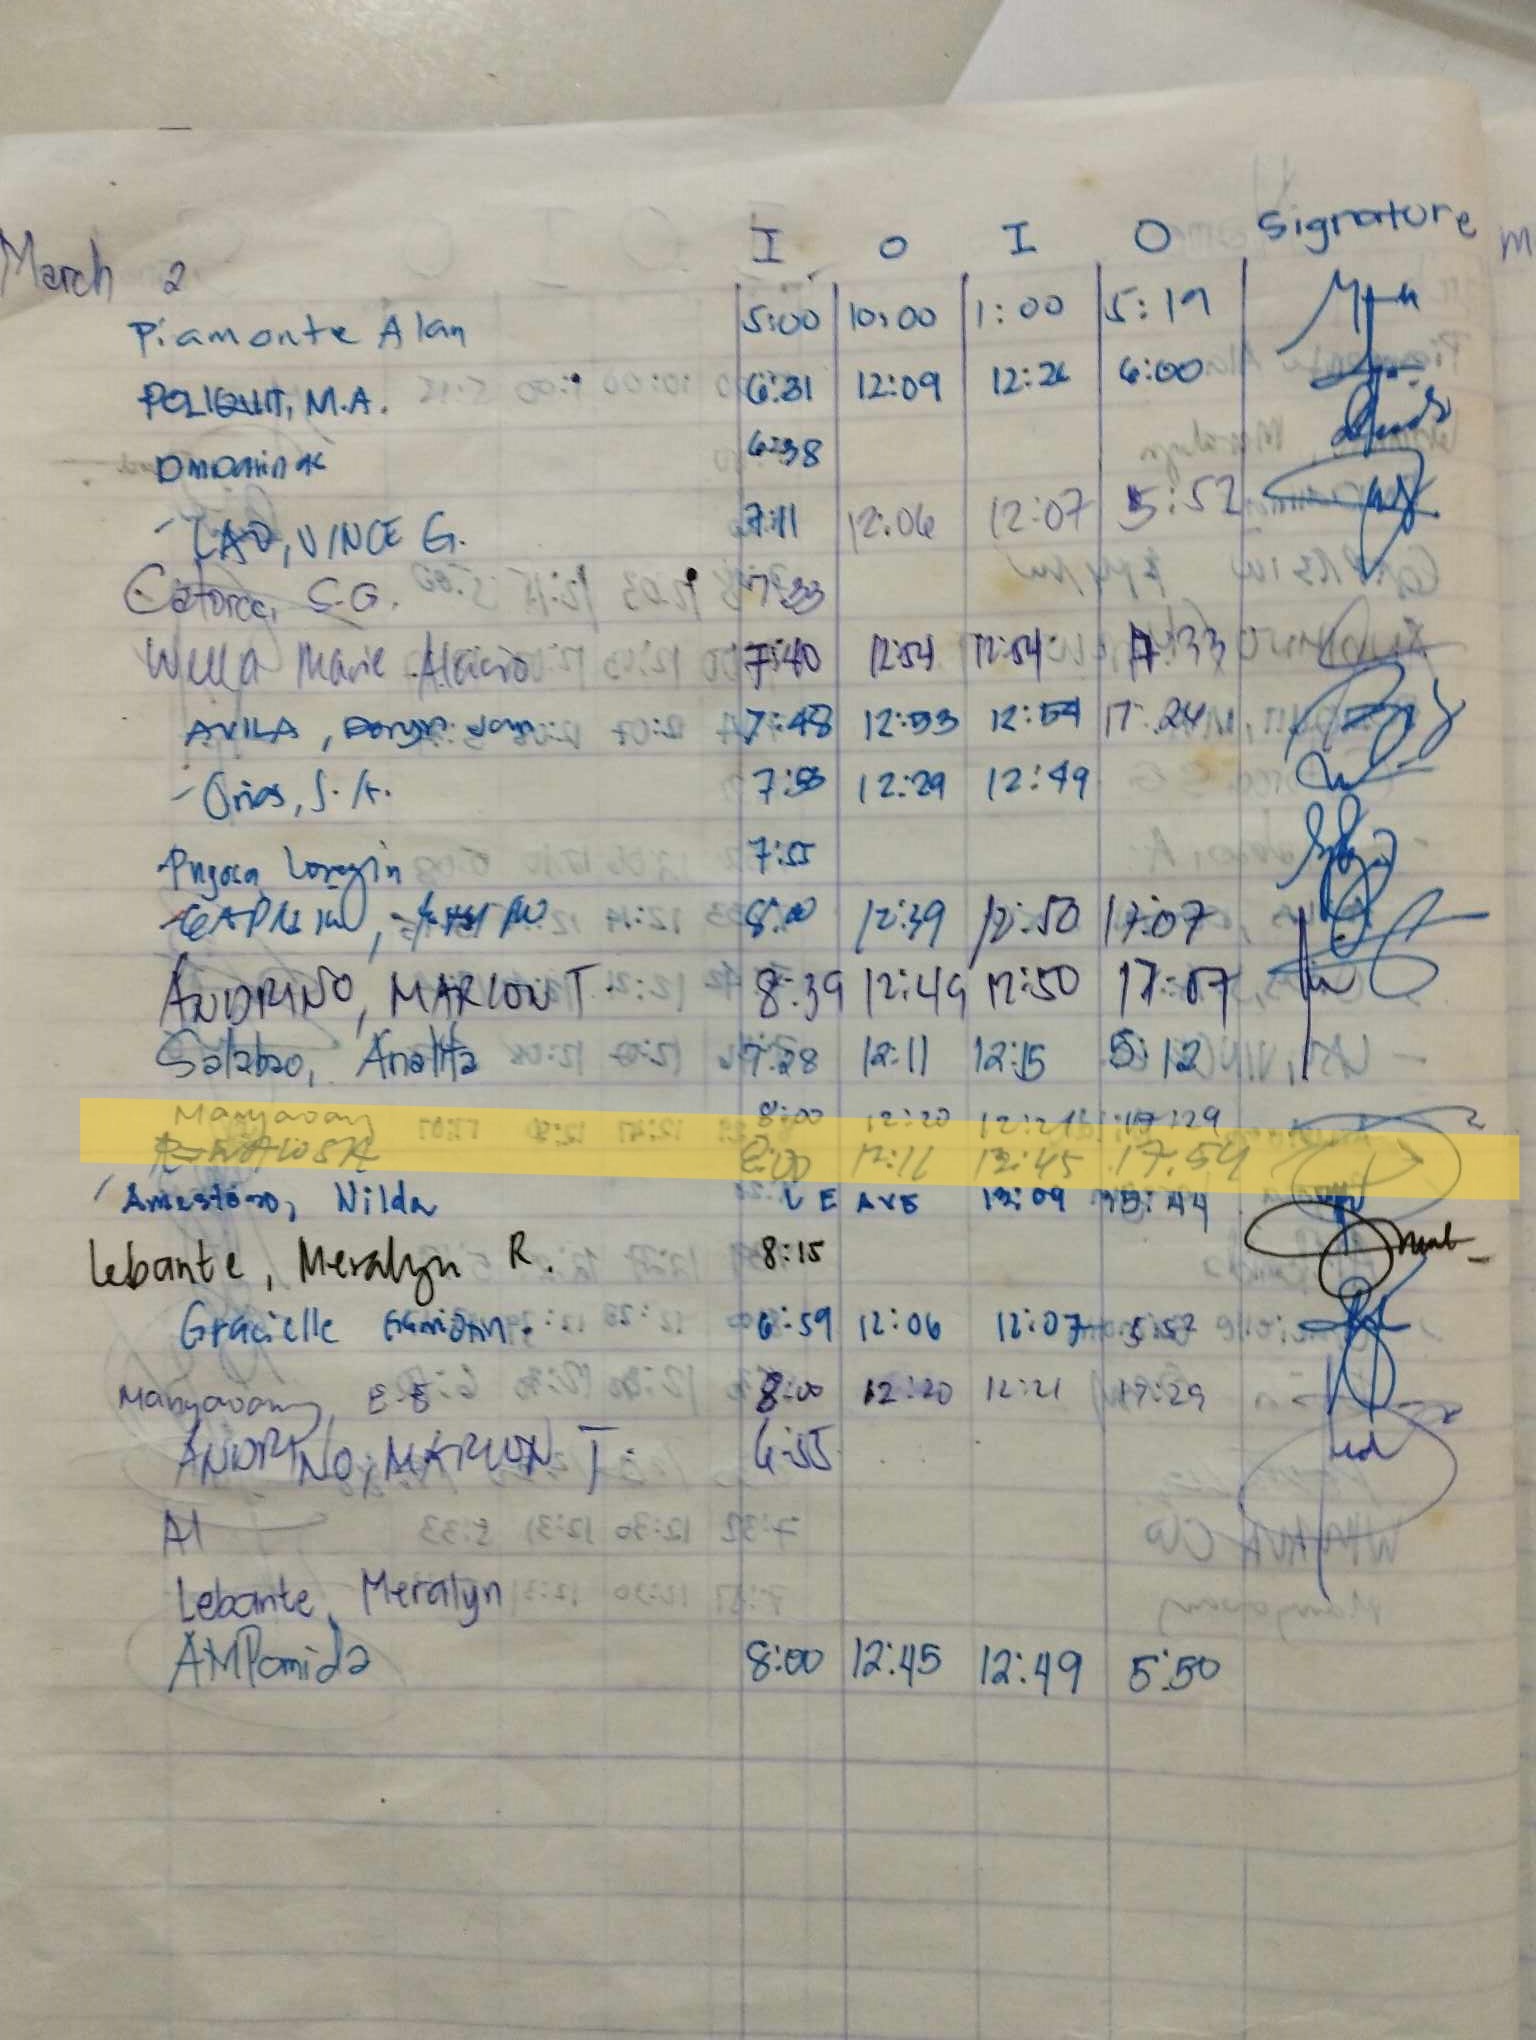 I O I O Signature
March 2
Piamonte Alan 5:00 10:00 1:00 5:19
POLIQUIT, M.A. 6:31 12:09 12:26 6:00
6:38
LAO, VINCE G. 7:11 12:06 12:07 5:52
Catorce, S.G. 7:33
Wella Marie Alacio 7:40 12:54 12:54 17:33
AVILA, 7:48 12:53 12:54 17:24
Orias, J. A. 12:29 12:49
7:55
8:00 12:39 12:50 17:07
ANDRINO, MARLON T. 8:39 12:49 12:50 17:07
Salabao, Analita 7:28 12:11 12:15 5:12
Manyavang 8:00 12:20 12:21 17:29
8:00 12:45 17:54
Amestoso, Nilda LEAVE 13:09
Lebante, Meralyn R. 8:15
Gracielle 6:59 12:06 12:07 5:52
Manyavang, E E 8:00 12:20 12:21 17:29
ANDRINO, MARLON T. 6:55
Al
Lebante, Meralyn
AMPomida 8:00 12:45 12:49 5:50